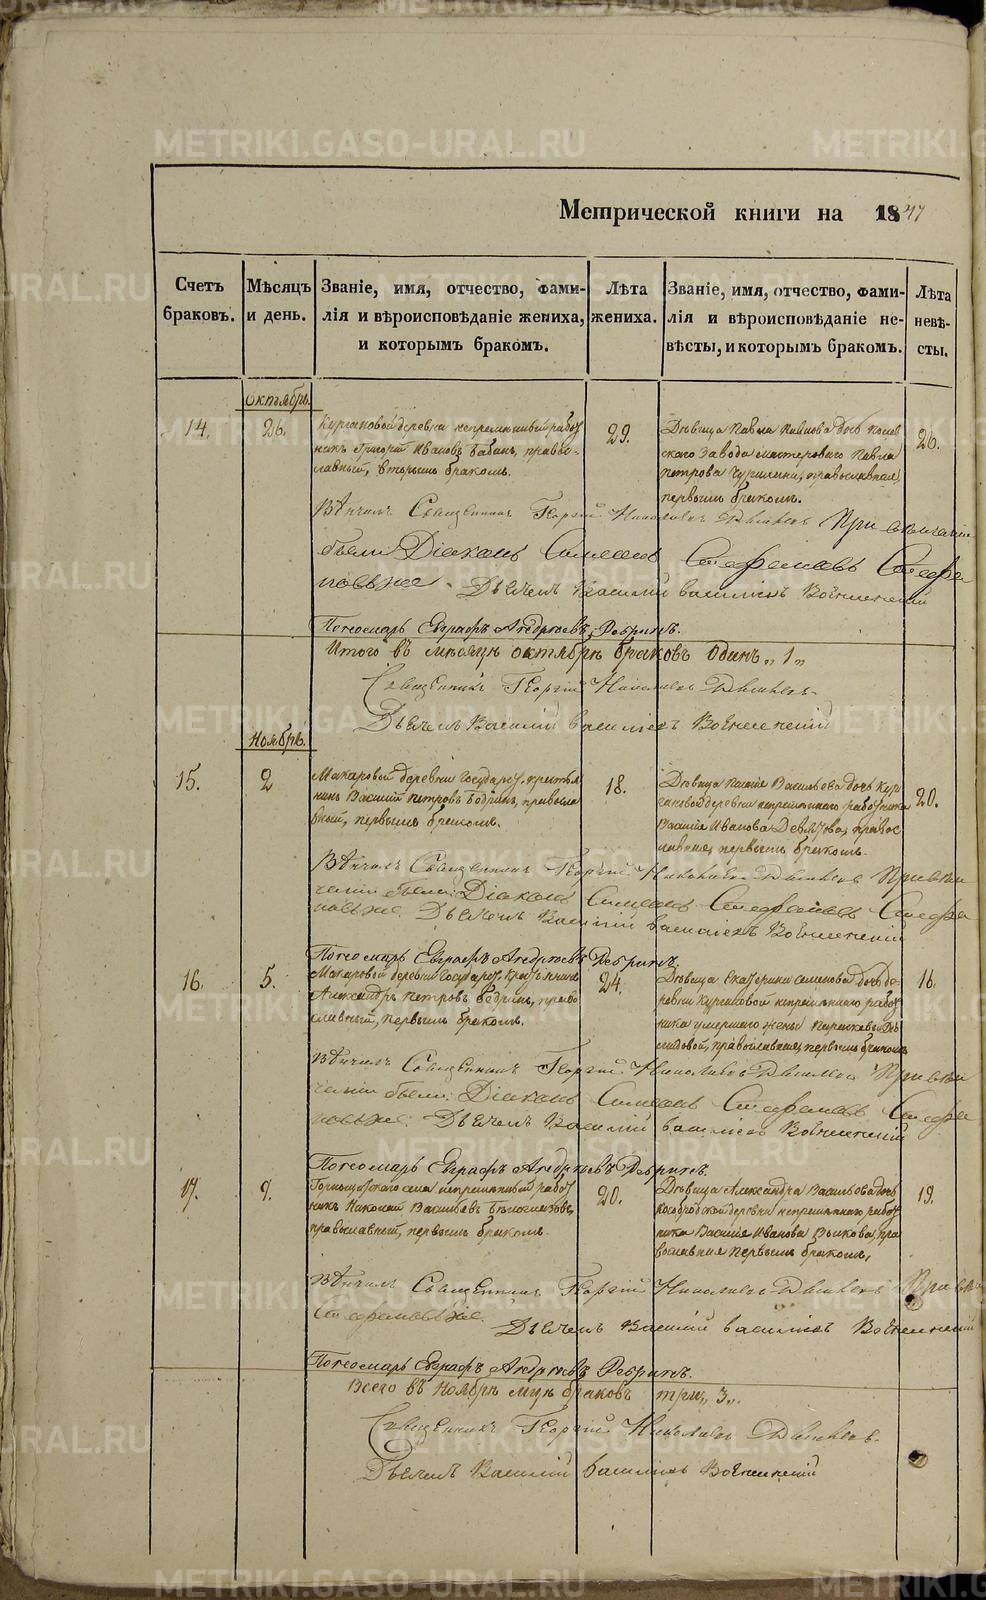 METRIKI.GASO-URAL.RU
Метрической книги на 1847
Счетъ браковъ.
Мѣсяцъ и день.
Званіе, имя, отчество, фами-
лія и вѣроисповѣданіе жениха,
и которымъ бракомъ.
Лѣта жениха.
Званіе, имя, отчество, фами-
лія и вѣроисповѣданіе не-
вѣсты, и которымъ бракомъ.
Лѣта невѣ-
сты.
Октябрь.
14.
26.
Кургановой деревни непремѣнный работ
никъ Григорій Ивановъ Бабинъ, правос-
лавный, вторымъ бракомъ.
29.
Дѣвица Павла дочь
скаго завода мастероваго Павла
Петрова православная,
первымъ бракомъ.
26.
Вѣнчалъ Священникъ Георгій Николаевъ При вѣнчаніи
были Діаконъ Симеонъ Стефановъ Стефа
новъ же. Дьячекъ Василій Васильевъ Вознесенскій
Пономарь Евграфъ Андреевъ Ребринъ.
Итого въ мѣсяцѣ октябрѣ браковъ одинъ „1„
Священникъ Георгій Николаевъ
Дьячекъ Василій Васильевъ Вознесенскій
Ноябрь.
15.
2
Макаровой деревни Государ. крестья
нинъ Василій Петровъ Бедринъ, правосла
вный, первымъ бракомъ.
18.
Дѣвица Васильева дочь Кур
гановой деревни непремѣннаго работника
Василія Иванова Девятова, правос
лавная, первымъ бракомъ.
20.
Вѣнчалъ Священникъ Георгій Николаевъ При вѣн
чаніи были: Діаконъ Симеонъ Стефановъ Стефа
новъ же. Дьячекъ Василій Васильевъ Вознесенскій
Пономарь Евграфъ Андреевъ Ребринъ.
16.
5.
Макаровой деревни Государ. крестьянинъ
Александръ Петровъ Бедринъ, право
славный, первымъ бракомъ.
24.
Дѣвица Екатерина Семенова дочь де
ревни Кургановой непремѣннаго работ
ника умершаго жены
православная, первымъ бракомъ
16.
Вѣнчалъ Священникъ Георгій Николаевъ При вѣн
чаніи были: Діаконъ Симеонъ Стефановъ Стефа
новъ же. Дьячекъ Василій Васильевъ Вознесенскій
Пономарь Евграфъ Андреевъ Ребринъ.
17.
9.
Горнощитскаго села непремѣнный работ
никъ Николай Васильевъ Бѣлоглазовъ,
православный, первымъ бракомъ.
20.
Дѣвица Александра Васильева дочь
Кособродской деревни непремѣннаго работ
ника Василія Иванова Быкова, пра
вославная первымъ бракомъ,
19.
Вѣнчалъ Священникъ Георгій Николаевъ При
Дьячекъ Василій Васильевъ Вознесенскій
Пономарь Евграфъ Андреевъ Ребринъ.
Всего въ Ноябрѣ мцѣ браковъ три„ 3„.
Священникъ Георгій Николаевъ
Дьячекъ Василій Васильевъ Вознесенскій